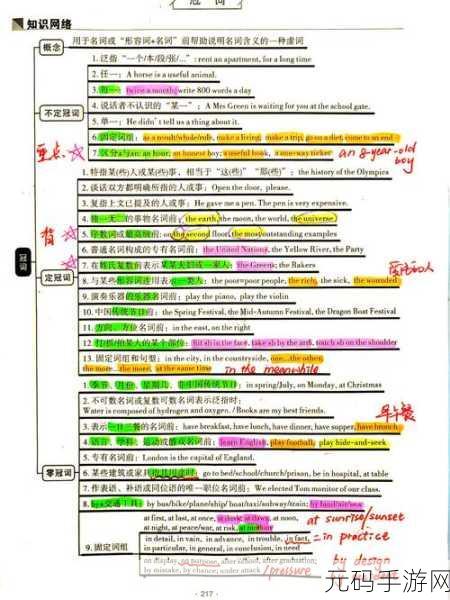 冠 词
知识网络
概念
用于名词或“形容词+名词”前帮助说明名词含义的一种虚词
冠词
不定冠词
1. 泛指“一个/本/段/张/...”: rent an apartment, for a long time
2. 任一: A horse is a useful animal.
3. 每一: twice a month; write 800 words a day
4. 说话者不认识的“某一”: A Mrs Green is waiting for you at the school gate.
5. 单一: He didn't tell us a thing about it.
6. 固定词组: as a result/whole/rule, make a living, make a trip, go on a diet, come to an end
7. 区分a与an: an hour, an honest boy; a useful book, a one-way ticket
an 8-year-old boy
重点
定冠词
1. 特指某(些)人或某(些)事，相当于“这(些)”“那(些)”: the history of the Olympics
2. 谈话双方都明确所指的人或事: Open the door, please.
3. 复指上文已提及的人或事: He gave me a pen. The pen is very expensive.
4. 独一无二的事物名词前: the earth, the moon, the world, the universe
5. 序数词或最高级前: on the second floor, the most outstanding examples
6. 普通名词构成的专有名词前: the United Nations, the Yellow River, the Party
7. 在姓氏复数前表示某某夫妇或一家人: the Greens; the Bakers
8. 与某些形容词连用表示一类人: the poor=poor people, the rich, the sick, the wounded
9. 演奏乐器的乐器名词前: play the piano, play the violin
10. 中国传统节日前: the Spring Festival, the Mid-Autumn Festival, the Dragon Boat Festival
11. 方向、方位名词前: in the east, on the right
12. 打/抓/拍某人的某个部位: hit sb in the face, take sb by the arm, touch sb on the shoulder
13. 固定词组和句型: in the city, in the countryside, one...the other,
the more...the more, at the same time
in the meanwhile
零冠词
1. 季节、月份、星期几、非中国传统节日: in spring/July, on Monday, at Christmas
2. 不可数名词或复数可数名词表示泛指时:
Water is composed of hydrogen and oxygen. / Books are my best friends.
3. 表示一日三餐的名词前: have breakfast, have lunch, have dinner, have supper, have brunch
早午餐
4. 语言、学科、运动或游戏名词前: learn English, play football, play hide-and-seek
5. 专有名词前: London is the capital of England.
6. 某些建筑或家具指其用途时: go to bed/school/church/prison, be in hospital, at table
7. 作表语、补语或同位语的唯一职位名词前: We elected Tom monitor of our class.
8. by+交通工具: by bus/bike/plane/ship/boat/taxi/subway/train; by land/air/sea
9. 固定词组
at first, at last, at once, at dusk, at dawn, at noon,
at night, at peace/war, at risk, at mercy
at sunrise/sunset
in detail, in vain, in advance, in trouble, in fact,
=in practice
in particular, in general, in conclusion, in need
on display, on purpose, after school, after graduation;
by mistake, by chance; under attack
/pressure
by design
· 217 ·
元码手游网